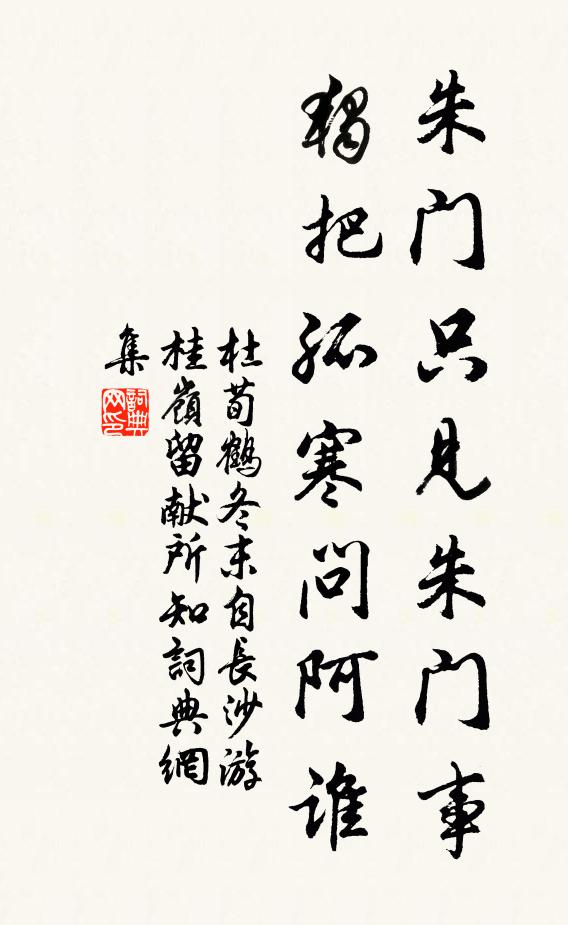 朱门只见朱门事
独把孤寒问阿谁
杜荀鶴冬末自長沙游
桂嶺留献所知詞典網
集
詞典网印